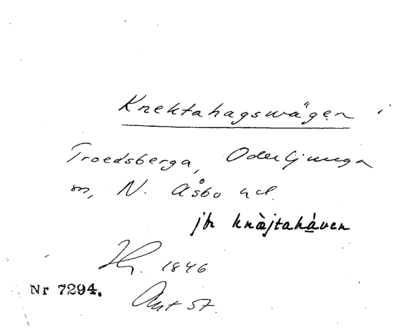 Knektahagsvägen i
Troedsberga, Oderljunga
sn, N. Åsbo hd.
jfr knàjtahàven
1846
Nr 7294. Ant St.